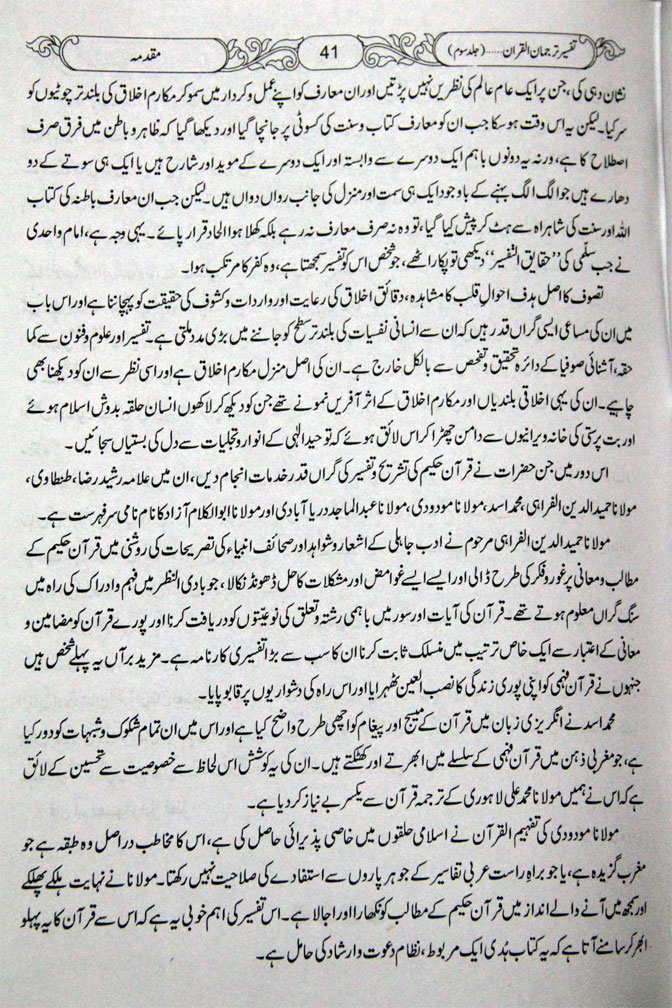 تفسیر ترجمان القرآن......(جلد سوم)
41
مقدمہ
نشان دہی کی، جن پر ایک عام عالم کی نظریں نہیں پڑتیں اور ان معارف کو اپنے عمل و کردار میں سمو کر مکارم اخلاق کی بلند تر چوٹیوں کو
سر کیا۔ لیکن یہ اس وقت ہو سکا جب ان کو معارف کتاب و سنت کی کسوٹی پر جانچا گیا اور دیکھا گیا کہ ظاہر و باطن میں فرق صرف
اصطلاح کا ہے، ورنہ یہ دونوں باہم ایک دوسرے سے وابستہ اور ایک دوسرے کے موید اور شارح ہیں یا ایک ہی سوتے کے دو
دھارے ہیں جو الگ الگ بہنے کے باوجود ایک ہی سمت اور منزل کی جانب رواں دواں ہیں۔ لیکن جب ان معارف باطنہ کی کتاب
اللہ اور سنت کی شاہراہ سے ہٹ کر پیش کیا گیا، تو وہ نہ صرف معارف نہ رہے بلکہ کھلا ہوا الحاد قرار پائے۔ یہی وجہ ہے، امام واحدی
نے جب سلمی کی ’’حقایق التفسیر‘‘ دیکھی تو پکار اٹھے، جو شخص اس کو تفسیر سمجھتا ہے، وہ کفر کا مرتکب ہوا۔
تصوف کا اصل ہدف احوالِ قلب کا مشاہدہ، دقائق اخلاق کی رعایت اور واردات و کشوف کی حقیقت کو پہچاننا ہے اور اس باب
میں ان کی مساعی ایسی گراں قدر ہیں کہ ان سے انسانی نفسیات کی بلند تر سطح کو جاننے میں بڑی مدد ملتی ہے۔ تفسیر اور علوم و فنون سے کما
حقہ، آشنائی صوفیا کے دائرہ تحقیق و تفحص سے بالکل خارج ہے۔ ان کی اصل منزل مکارم اخلاق ہے اور اسی نظر سے ان کو دیکھنا بھی
چاہیے۔ ان کی یہی اخلاقی بلندیاں اور مکارم اخلاق کے اثر آفریں نمونے تھے جن کو دیکھ کر لاکھوں انسان حلقہ بدوش اسلام ہوئے
اور بت پرستی کی خانہ ویرانیوں سے دامن چھڑا کر اس لائق ہوئے کہ توحید الٰہی کے انوار و تجلیات سے دل کی بستیاں سجائیں۔
اس دور میں جن حضرات نے قرآن حکیم کی تشریح و تفسیر کی گراں قدر خدمات انجام دیں، ان میں علامہ رشید رضا، طنطاوی،
مولانا حمید الدین الفراہی، محمد اسد، مولانا مودودی، مولانا عبدالماجد دریا آبادی اور مولانا ابوالکلام آزاد کا نام نامی سر فہرست ہے۔
مولانا حمید الدین الفراہی مرحوم نے ادب جاہلی کے اشعار و شواہد اور صحائف انبیاء کی تصریحات کی روشنی میں قرآن حکیم کے
مطالب و معانی پر غور و فکر کی طرح ڈالی اور ایسے ایسے غوامض اور مشکلات کا حل ڈھونڈ نکالا، جو بادی النظر میں فہم و ادراک کی راہ میں
سنگ گراں معلوم ہوتے تھے۔ قرآن کی آیات اور سور میں باہمی رشتہ و تعلق کی نوعیتوں کو دریافت کرنا اور پورے قرآن کو مضامین و
معانی کے اعتبار سے ایک خاص ترتیب میں منسلک ثابت کرنا ان کا سب سے بڑا تفسیری کارنامہ ہے۔ مزید بر آں یہ پہلے شخص ہیں
جنہوں نے قرآن فہمی کو اپنی پوری زندگی کا نصب العین ٹھہرایا اور اس راہ کی دشواریوں پر قابو پایا۔
محمد اسد نے انگریزی زبان میں قرآن کے میسج اور پیغام کو اچھی طرح واضح کیا ہے اور اس میں ان تمام شکوک و شبہات کو دور کیا
ہے، جو مغربی ذہن میں قرآن فہمی کے سلسلے میں ابھرتے اور کھٹکتے ہیں۔ ان کی یہ کوشش اس لحاظ سے خصوصیت سے تحسین کے لائق
ہے کہ اس نے ہمیں مولانا محمد علی لاہوری کے ترجمہ قرآن سے یکسر بے نیاز کر دیا ہے۔
مولانا مودودی کی تفہیم القرآن نے اسلامی حلقوں میں خاصی پذیرائی حاصل کی ہے، اس کا مخاطب در اصل وہ طبقہ ہے جو
مغرب گزیدہ ہے، یا جو براہِ راست عربی تفاسیر کے جوہر پاروں سے استفادے کی صلاحیت نہیں رکھتا۔ مولانا نے نہایت ہلکے پھلکے
اور سمجھ میں آنے والے انداز میں قرآن حکیم کے مطالب کو نکھارا اور اجالا ہے۔ اس تفسیر کی اہم خوبی یہ ہے کہ اس سے قرآن کا یہ پہلو
ابھر کر سامنے آتا ہے کہ یہ کتاب ہُدی ایک مربوط، نظام دعوت و ارشاد کی حامل ہے۔